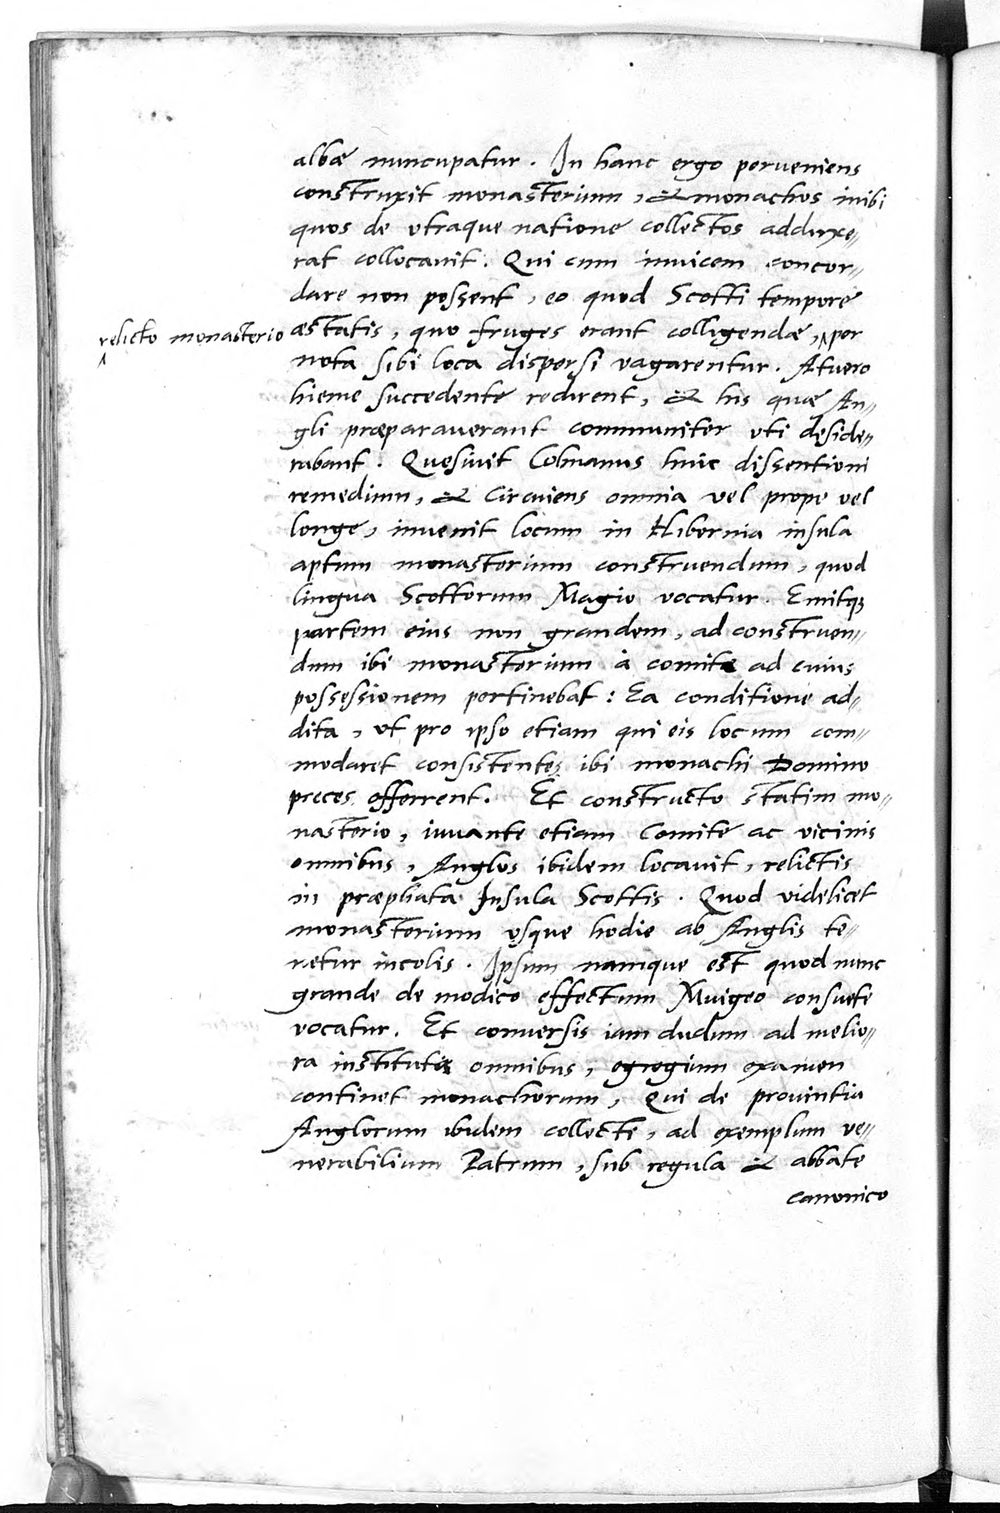 albæ nuncupatur. In hanc ergo perveniens
construxit monasterium, & monachos inibi
quos de utraque natione collectos adduxe-
rat collocavit. Qui cum invicem concor-
dare non possent, eo quod Scotti tempore
relicto monasterio
æstatis, quo fruges erant colligendæ, ^ per
nota sibi loca dispersi vagarentur. At vero
hieme succedente redirent, & his quæ An-
gli præparaverant communiter uti deside-
rabant. Quesivit Colmanus huic dissentioni
remedium, & circuiens omnia vel prope vel
longe, invenit locum in Hibernia insula
aptum monasterium construendum, quod
lingua Scottorum Magio vocatur. Emitq;
partem eius non grandem, ad construen-
dum ibi monasterium à comite ad cuius
possessionem pertinebat: Ea conditione ad-
dita, ut pro ipso etiam qui eis locum com-
modaret consistentes ibi monachi Domino
preces offerrent. Et constructo statim mo-
nasterio, iuvante etiam Comite ac vicinis
omnibus, Anglos ibidem locavit, relictis
in præphata Insula Scottis. Quod videlicet
monasterium usque hodie ab Anglis te-
netur incolis. Ipsum namque est quod nunc
grande de modico effectum Muigeo consuete
vocatur. Et conversis iam dudum ad melio-
ra institutis omnibus, egregium examen
continet monachorum, Qui de provintia
Anglorum ibidem collecti, ad exemplum ve-
nerabilium Patrum, sub regula & abbate
canonico